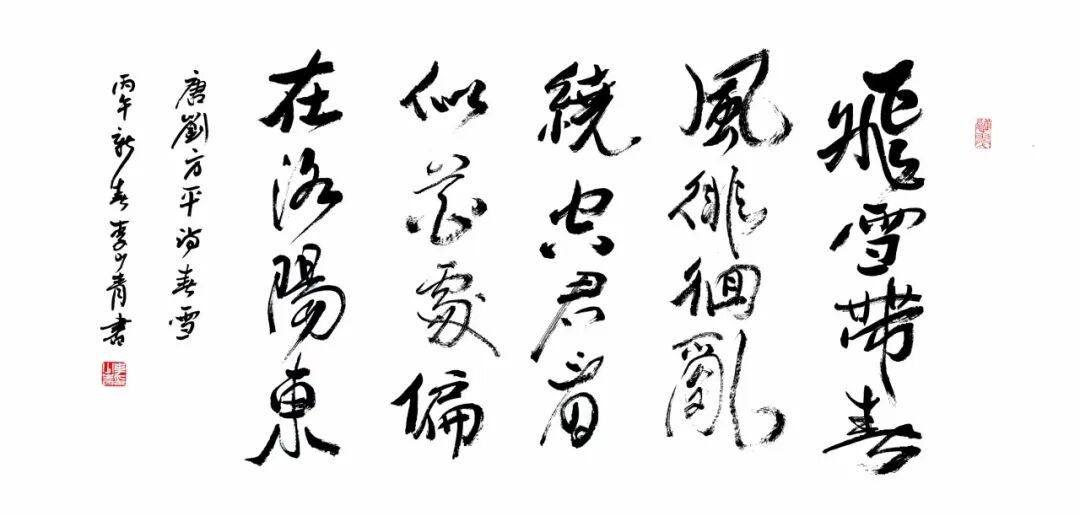 飛雪帶春
風徘徊亂
繞空君看
似花處偏
在洛陽東
唐劉方平詩春雪
丙午新春李山青書